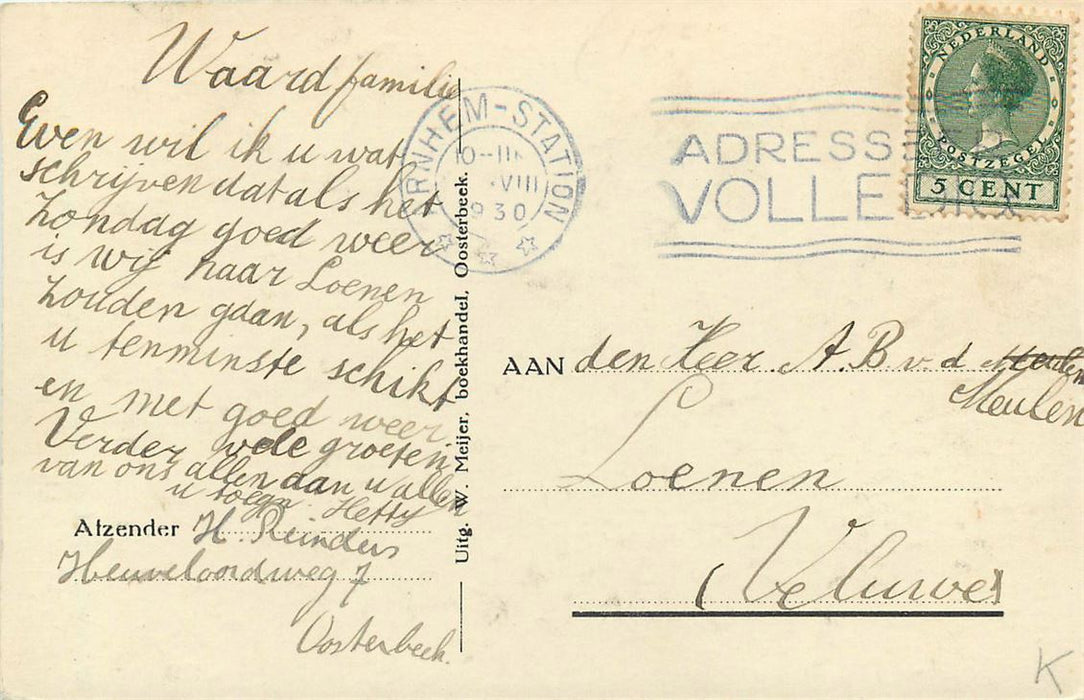 Waard familie
Even wil ik u wat
schrijven dat als het
Zondag goed weer
is wij naar Loenen
zouden gaan, als het
u tenminste schikt
en met goed weer.
Verder vele groeten
van ons allen aan u allen
u toegn. Hetty
Afzender H. Reinders
Heuveloordweg 7
Oosterbeek.
Uitg. W. Meijer, boekhandel, Oosterbeek.
ARNHEM-STATION
10-11
VIII
1930
ADRESSE
VOLLE
NEDERLAND
POSTZEGEL
5 CENT
AAN den Heer A.B. v. d. Meulen
Meulen
Loenen
(Veluwe)
K